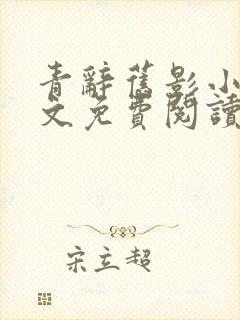 青辭舊影小
文免費閱讀
宋立超